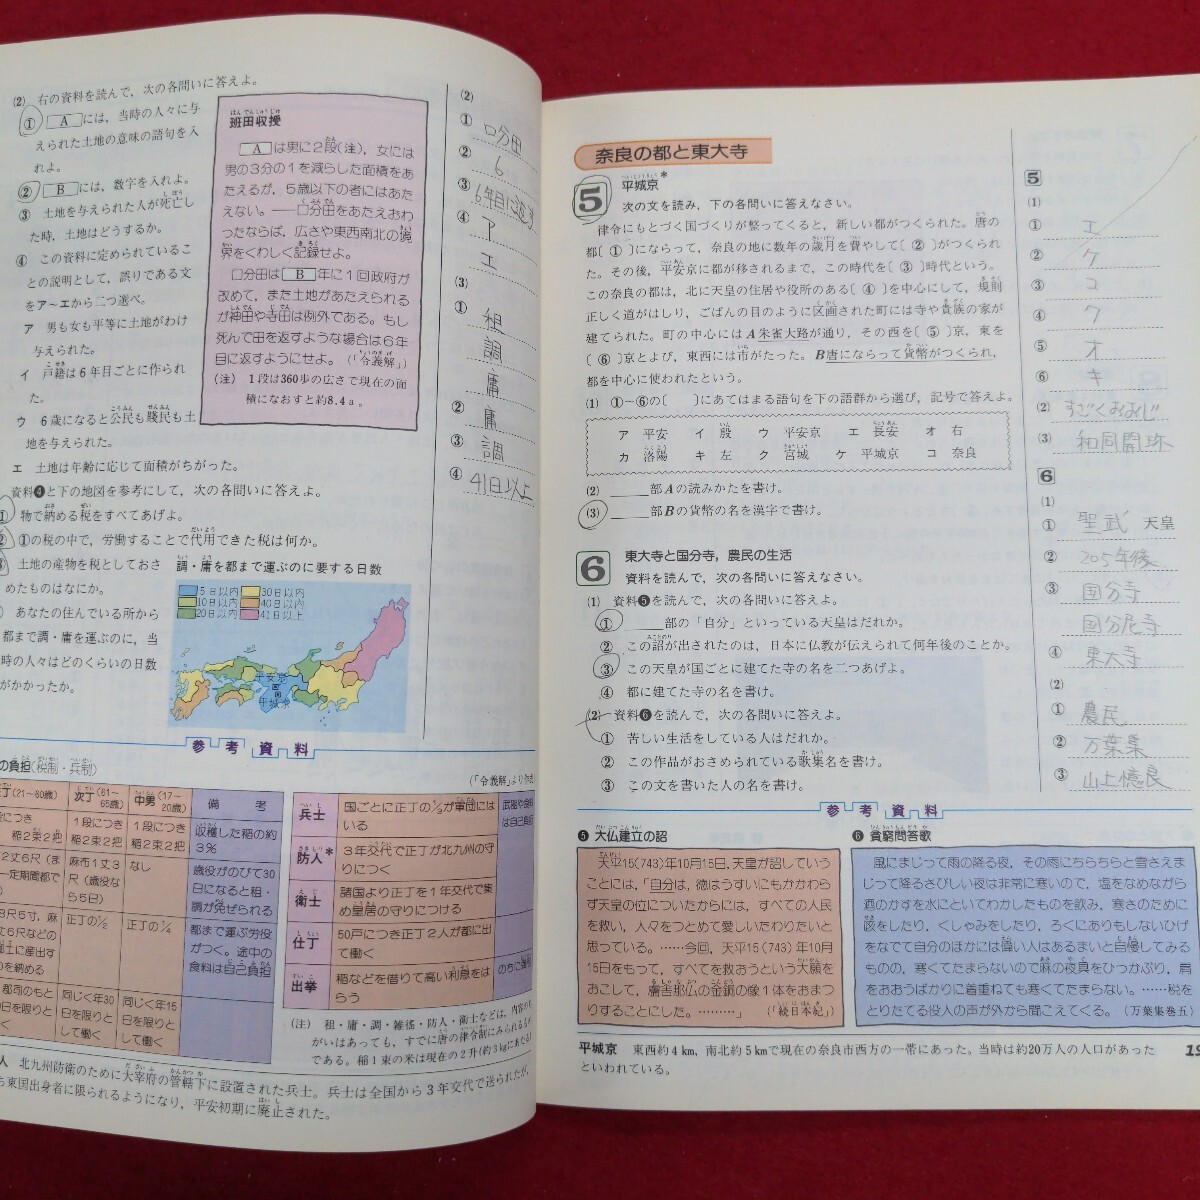 (2) 右の資料を読んで，次の各問いに答えよ。
① Aには，当時の人々に与
えられた土地の意味の語句を入
れよ。
② Bには，数字を入れよ。
③ 土地を与えられた人が死亡し
た時，土地はどうするか。
④ この資料に定められているこ
との説明として，誤りである文
をア〜エから二つ選べ。
ア 男も女も平等に土地がわけ
与えられた。
イ 戸籍は6年目ごとに作られ
た。
ウ 6歳になると公民も賤民も土
地を与えられた。
エ 土地は年齢に応じて面積がちがった。
資料❹と下の地図を参考にして，次の各問いに答えよ。
① 物で納める税をすべてあげよ。
② ①の税の中で，労働することで代用できた税は何か。
③ 土地の産物を税としておさ
めたものはなにか。
あなたの住んでいる所から
都まで調・庸を運ぶのに，当
時の人々はどのくらいの日数
がかかったか。
班田収授
Aは男に2段(注)，女には
男の3分の1を減らした面積をあ
たえるが，5歳以下の者にはあた
えない。——口分田をあたえおわ
ったならば，広さや東西南北の境
界をくわしく記録せよ。
口分田はB年に1回政府が
改めて，また土地があたえられる
が神田や寺田は例外である。もし
死んで田を返すような場合は6年
目に返すようにせよ。(「令義解」)
(注) 1段は360歩の広さで現在の面
積になおすと約8.4a。
調・庸を都まで運ぶのに要する日数
5日以内 30日以内
10日以内 40日以内
20日以内 41日以上
平安京
平城京
(2)
① 口分田
② 6
③ 6年目に返す
④ ア
エ
(3)
① 租
調
庸
② 庸
③ 調
④ 41日以上
参考資料
の負担(税制・兵制)
(「令義解」より作成)
丁(21〜60歳) 次丁(61〜65歳) 中男(17〜20歳) 備考
につき
稲2束2把
1段につき
稲2束2把
1段につき
稲2束2把
収穫した稲の約
3%
2丈6尺(ま
一定期間都で
麻布1丈3
尺(歳役な
ら5日)
なし
歳役がのびて30
日になると租・
調が免ぜられる
3尺5寸，麻
丈6尺などの
土に産出す
を納める
正丁の½
正丁の¼
都まで運ぶ労役
がつく。途中の
食料は自己負担
郡司のもと
日を限りと
く
同じく年30
日を限りと
して働く
同じく年15
日を限りと
して働く
兵士 国ごとに正丁の⅓が軍団には
いる
防人* 3年交代で正丁が北九州の守
りにつく
衛士 諸国より正丁を1年交代で集
め皇居の守りにつける
仕丁 50戸につき正丁2人が都に出
て働く
出挙 稲などを借りて高い利息をは
らう
(注) 租・庸・調・雑徭・防人・衛士などは，内容の
がいはあっても，すでに唐の律令制にみられるが
である。稲1束の米は現在の2升(約3kg)にあたる
人 北九州防衛のために大宰府の管轄下に設置された兵士。兵士は全国から3年交代で送られたが，
も東国出身者に限られるようになり，平安初期に廃止された。
奈良の都と東大寺
5 平城京*
次の文を読み，下の各問いに答えなさい。
律令にもとづく国づくりが整ってくると，新しい都がつくられた。唐の
都(①)にならって，奈良の地に数年の歳月を費やして(②)がつくられ
た。その後，平安京に都が移されるまで，この時代を(③)時代という。
この奈良の都は，北に天皇の住居や役所のある(④)を中心にして，規則
正しく道がはしり，ごばんの目のように区画された町には寺や貴族の家が
建てられた。町の中心にはA朱雀大路が通り，その西を(⑤)京，東を
(⑥)京とよび，東西には市がたった。B唐にならって貨幣がつくられ，
都を中心に使われたという。
(1) ①-⑥の( )にあてはまる語句を下の語群から選び，記号で答えよ。
ア 平安 イ 殷 ウ 平安京 エ 長安 オ 右
カ 洛陽 キ 左 ク 宮城 ケ 平城京 コ 奈良
(2) ____部Aの読みかたを書け。
(3) ____部Bの貨幣の名を漢字で書け。
6 東大寺と国分寺，農民の生活
資料を読んで，次の各問いに答えなさい。
(1) 資料❺を読んで，次の各問いに答えよ。
① ____部の「自分」といっている天皇はだれか。
② この詔が出されたのは，日本に仏教が伝えられて何年後のことか。
③ この天皇が国ごとに建てた寺の名を二つあげよ。
④ 都に建てた寺の名を書け。
(2) 資料❻を読んで，次の各問いに答えよ。
① 苦しい生活をしている人はだれか。
② この作品がおさめられている歌集名を書け。
③ この文を書いた人の名を書け。
5
(1)
① エ
② ケ
③ コ
④ ク
⑤ オ
⑥ キ
(2) すざくおおじ
(3) 和同開珎
6
(1)
① 聖武 天皇
② 205年後
③ 国分寺
国分尼寺
④ 東大寺
(2)
① 農民
② 万葉集
③ 山上憶良
参考資料
❺ 大仏建立の詔
天平15(743)年10月15日，天皇が詔していう
ことには，「自分は，徳はうすいにもかかわら
ず天皇の位についたからには，すべての人民
を救い，人々をつとめて愛しいたわりたいと
思っている。……今回，天平15(743)年10月
15日をもって，すべてを救おうという大願を
おこして，盧舎那仏の金銅の像1体をおまつ
りすることにした。………」 (「続日本紀」)
❻ 貧窮問答歌
風にまじって雨の降る夜，その雨にちらちらと雪さえま
じって降るさびしい夜は非常に寒いので，塩をなめながら
酒のかすを水にといてわかしたものを飲み，寒さのために
咳をしたり，くしゃみをしたり，ろくにありもしないひげ
をなでて自分のほかには偉い人はあるまいと自慢してみる
ものの，寒くてたまらないので麻の夜具をひっかぶり，肩
をおおうばかりに着重ねても寒くてたまらない。……税を
とりたてる役人の声が外から聞こえてくる。(万葉集巻五)
平城京 東西約4km，南北約5kmで現在の奈良市西方の一帯にあった。当時は約20万人の人口があった
といわれている。